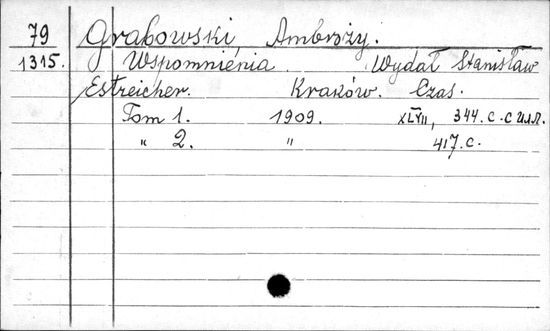 79 Grabowski, Ambroży.
1315. Wspomnienia. Wydał Stanisław
Estreicher. Kraków. Czas.
Tom 1. 1909. XLVII, 344. c. с илл.
„ 2. „ 417. c.